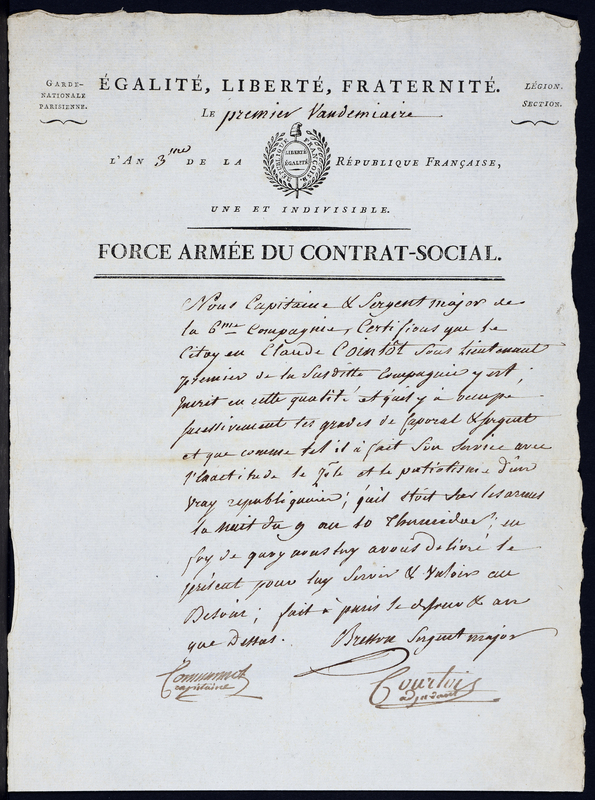 GARDE-
NATIONALE
PARISIENNE.
ÉGALITÉ, LIBERTÉ, FRATERNITÉ.
LÉGION.
SECTION.
LE premier Vandemiaire
L'AN 3me DE LA
RÉPUBLIQUE FRANÇOISE
LIBERTÉ
ÉGALITÉ
RÉPUBLIQUE FRANÇAISE,
UNE ET INDIVISIBLE.
FORCE ARMÉE DU CONTRAT-SOCIAL.
Nous Capitaine & Sergent major de
la 6me Compagnie, Certifions que le
Citoyen Claude Cointôt Sous Lieutenant
premier de la Susditte Compagnie y est
Inscrit en cette qualité et qu'il y à occupé
les grades de Caporal & Sergent
et que comme tel il à fait Son Service avec
l'Exactitude le Zele et le patriotisme d'un
vray republiquain; qu'il étoit Sur les armes
la nuit du 9 au 10 Thermidor; en
foy de quoy nous luy avons délivré le
présent pour luy Servir & Valoir au
Besoin; fait à paris le jour & an
que Dessus. Sergent major
capitaine
Courtois
adjudant